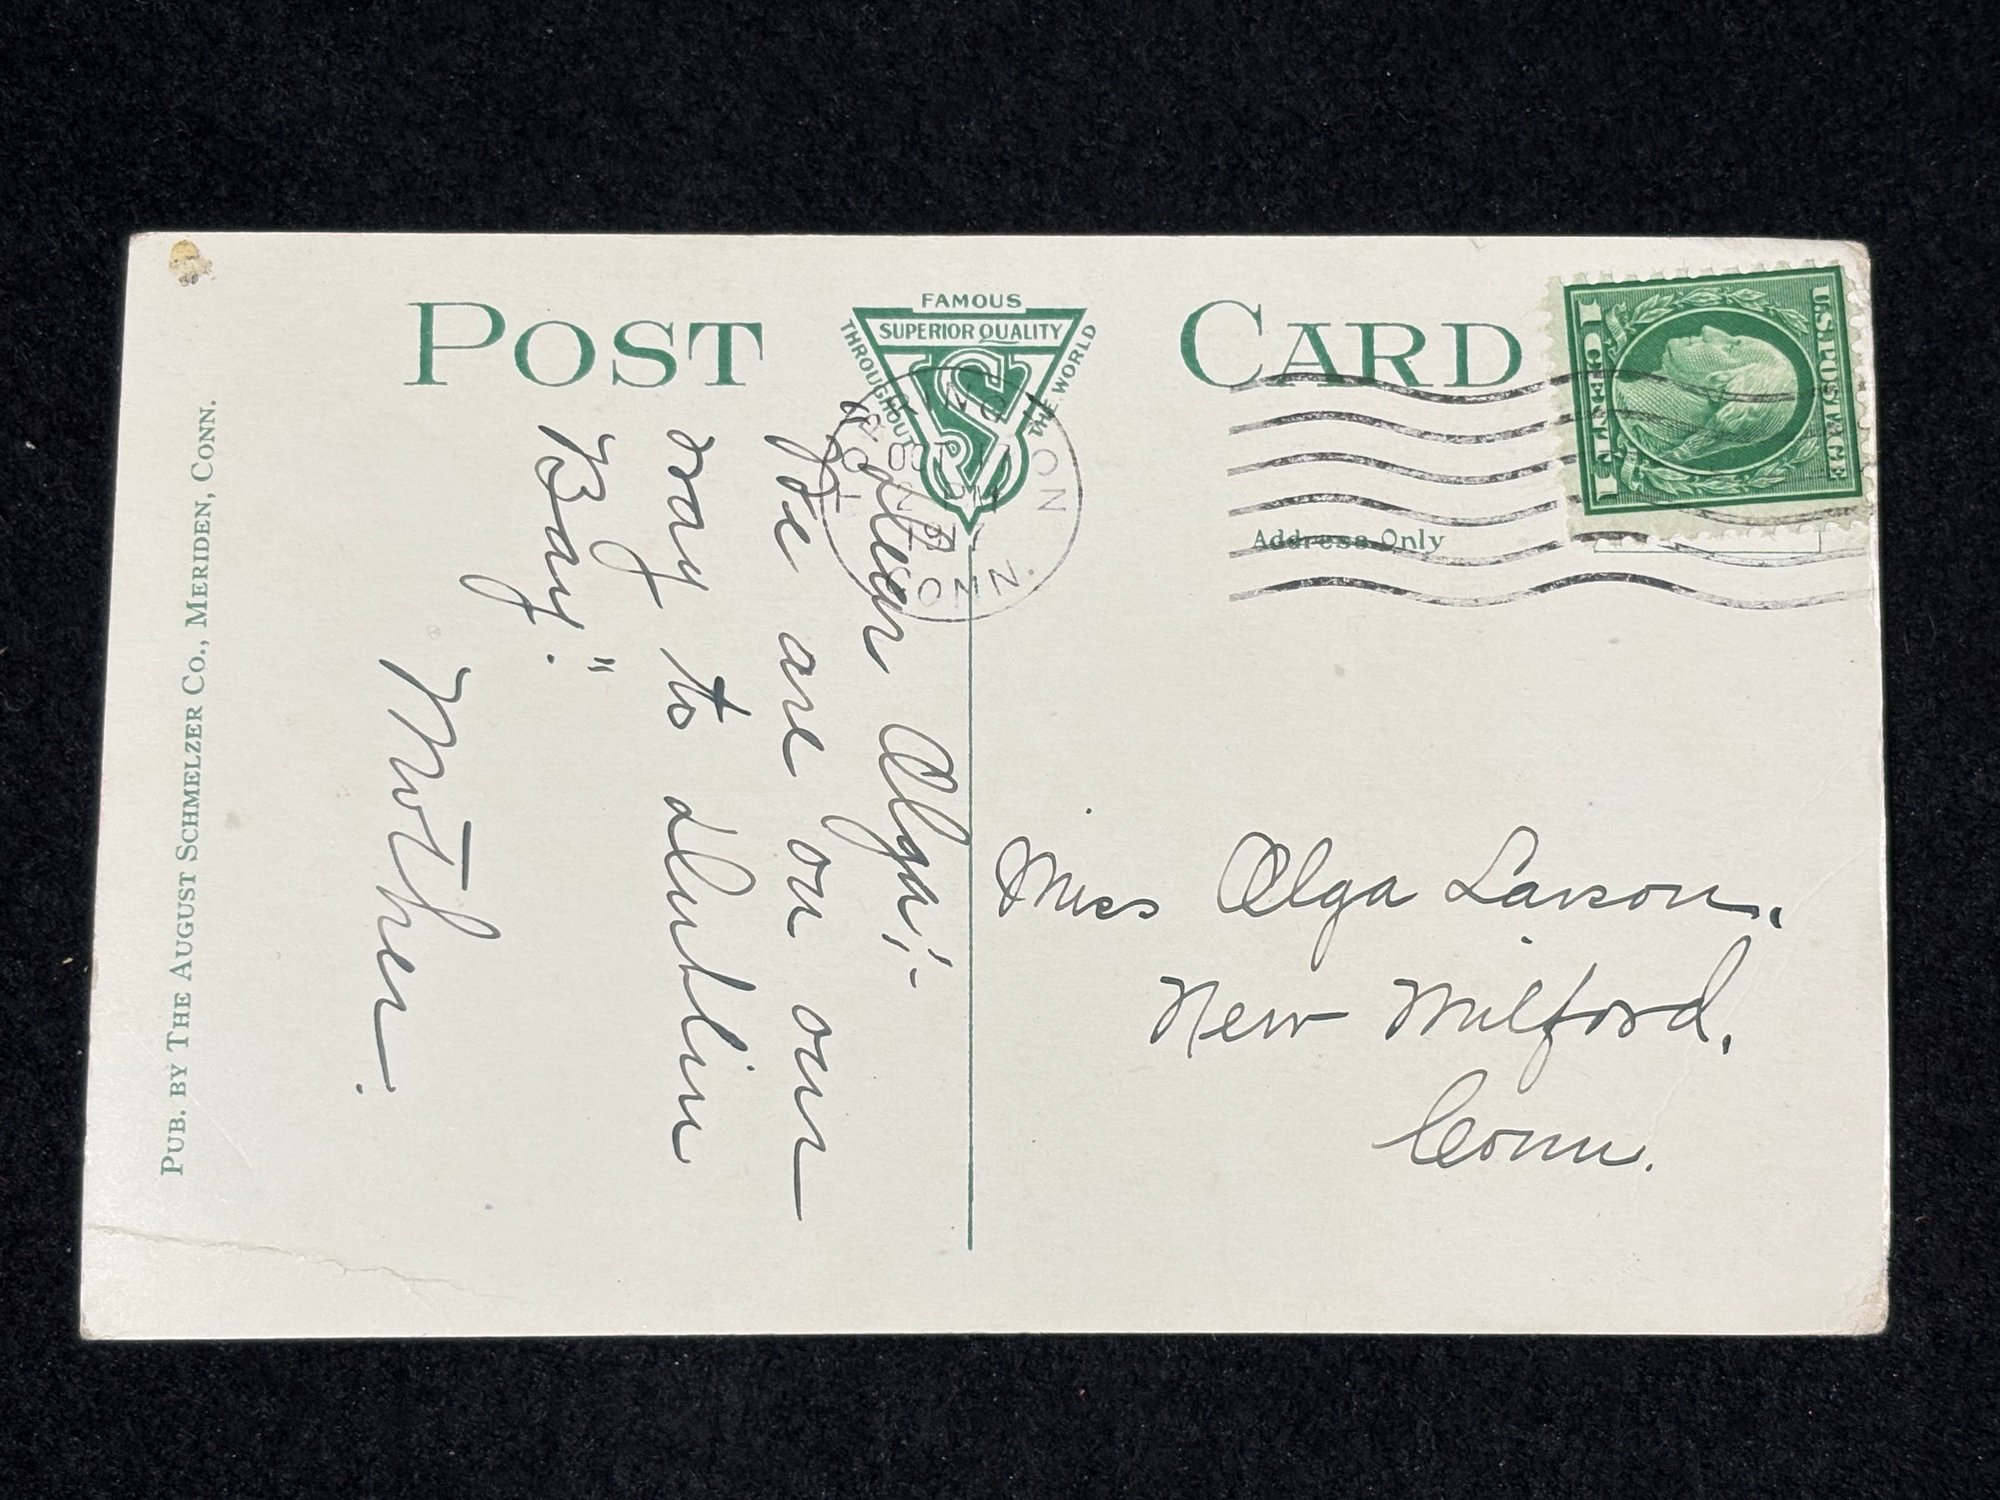 POST CARD
FAMOUS
SUPERIOR QUALITY
THROUGHOUT
THE WORLD
S
U.S. POSTAGE
1 CENT 1
Address Only
CONN.
Dear Olga;-
We are on our
way to
Bay."
Mother.
Miss Olga Larson,
New Milford,
Conn.
PUB. BY THE AUGUST SCHMELZER CO., MERIDEN, CONN.